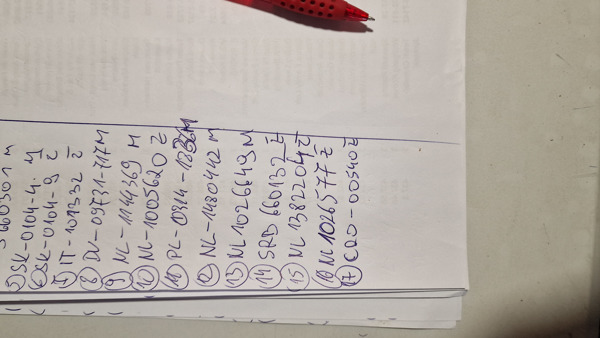 5 SK-0104-4. Y
6 SK-0104-9 Ž
7 IT-109332 Ž
8 DV-09721-717 M
9 NL-1144369 M
10 NL-1005620 Ž
11 PL-0914-
12 NL-1480442 M
13 NL 1026649 M
14 SRB 660132 Ž
15 NL 1382204 Ž
16 NL 1026577 Ž
17 CRO-00540 Ž